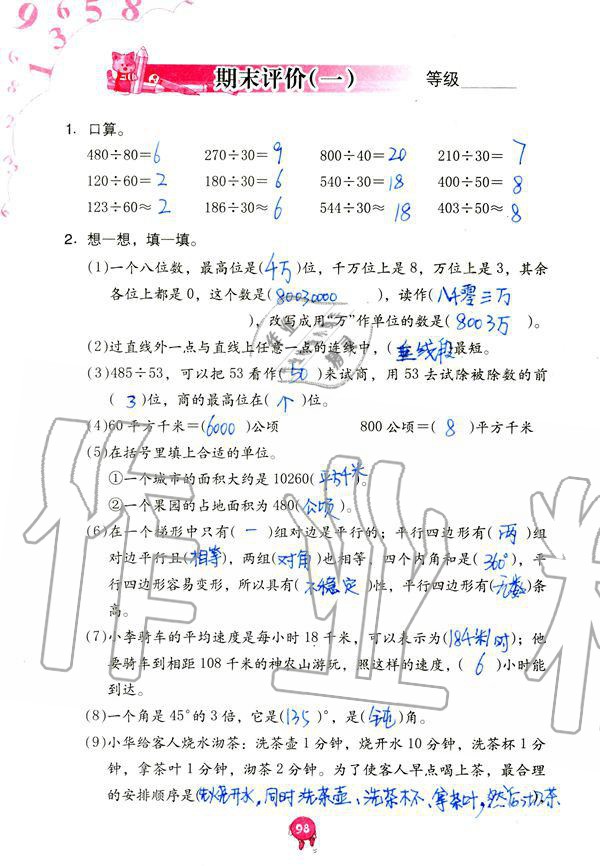 9 3 6 5 8
期末评价(一) 等级
1. 口算。
480÷80=6 270÷30=9 800÷40=20 210÷30=7
120÷60=2 180÷30=6 540÷30=18 400÷50=8
123÷60≈2 186÷30≈6 544÷30≈18 403÷50≈8
2. 想一想,填一填。
(1)一个八位数,最高位是(千万)位,千万位上是8,万位上是3,其余
各位上都是0,这个数是(80030000),读作(八千零三万
),改写成用“万”作单位的数是(8003万)。
(2)过直线外一点与直线上任意一点的连线中,(垂线段)最短。
(3)485÷53,可以把53看作(50)来试商,用53去试除被除数的前
(3)位,商的最高位在(个)位。
(4)60平方千米=(6000)公顷 800公顷=(8)平方千米
(5)在括号里填上合适的单位。
①一个城市的面积大约是10260(平方千米)。
②一个果园的占地面积是480(公顷)。
(6)在一个梯形中只有(一)组对边是平行的;平行四边形有(两)组
对边平行且(相等),两组(对角)也相等,四个内角和是(360°),平
行四边形容易变形,所以具有(不稳定)性,平行四边形有(无数)条
高。
(7)小李骑车的平均速度是每小时18千米,可以表示为(18千米/时);他
要骑车到相距108千米的神农山游玩,照这样的速度,(6)小时能
到达。
(8)一个角是45°的3倍,它是(135)°,是(钝)角。
(9)小华给客人烧水沏茶:洗茶壶1分钟,烧开水10分钟,洗茶杯1分
钟,拿茶叶1分钟,沏茶2分钟。为了使客人早点喝上茶,最合理
的安排顺序是(先烧开水,同时洗茶壶、洗茶杯、拿茶叶,然后沏茶
98
作业精